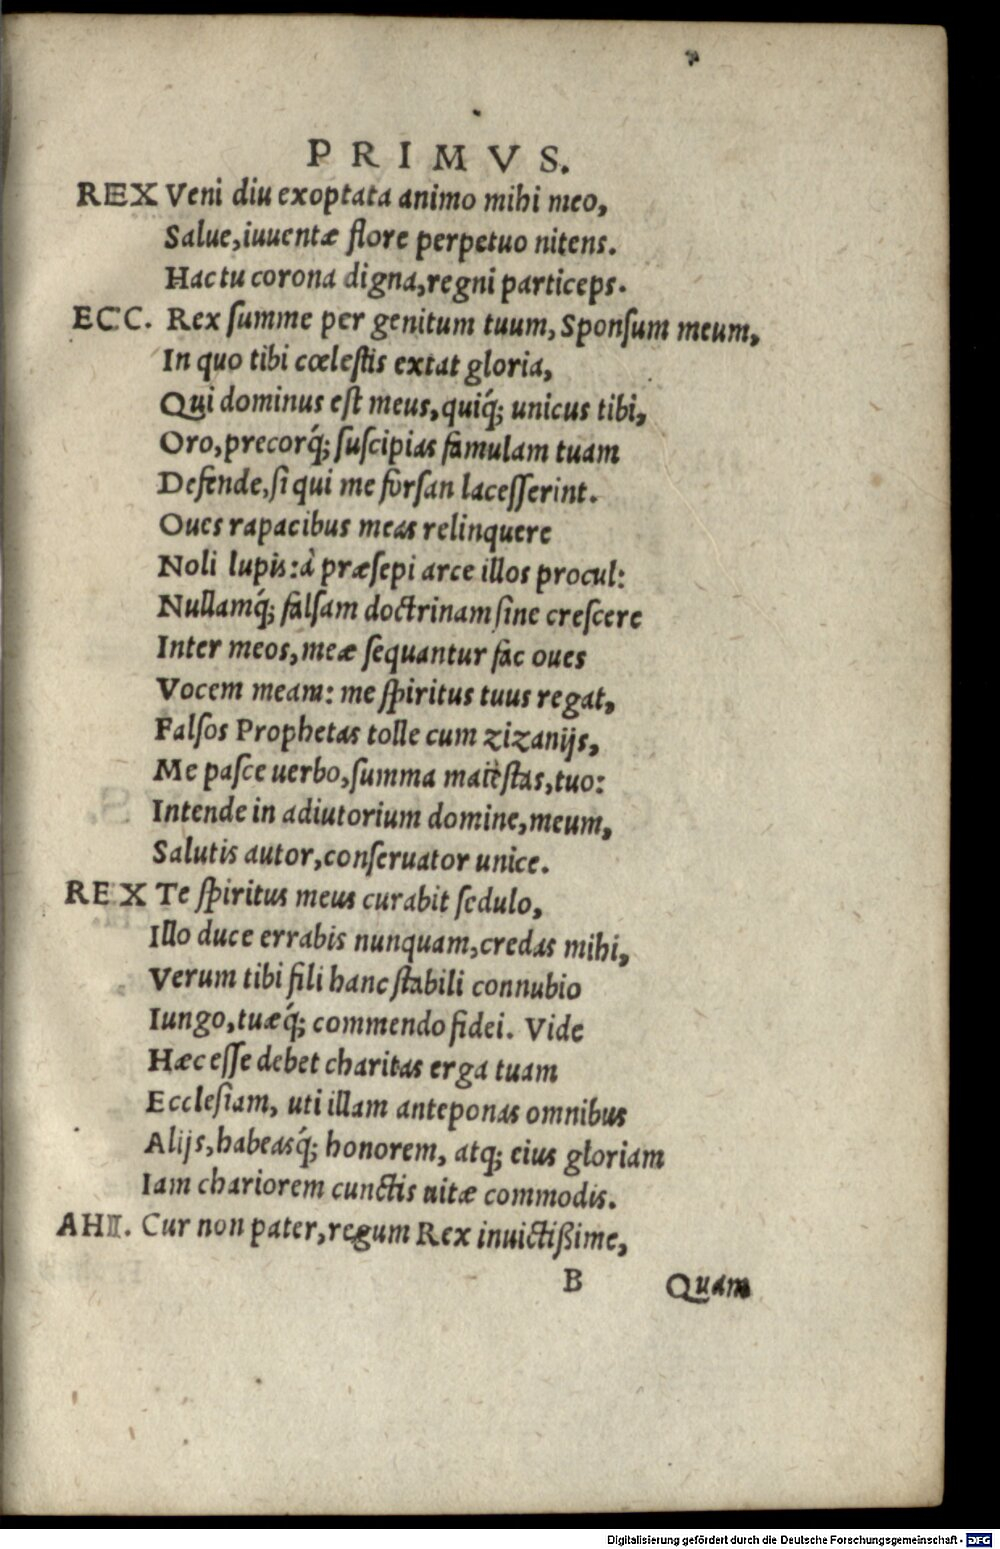 PRIMVS.
REX Veni diu exoptata animo mihi meo,
Salue, iuuentæ flore perpetuo nitens.
Hac tu corona digna, regni particeps.
ECC. Rex ſumme per genitum tuum, Sponſum meum,
In quo tibi cœleſtis extat gloria,
Qui dominus eſt meus, quiq́; unicus tibi,
Oro, precorq́; ſuſcipias famulam tuam
Defende, ſi qui me forſan laceſſerint.
Oues rapacibus meas relinquere
Noli lupis: à præſepi arce illos procul:
Nullamq́; falſam doctrinam ſine creſcere
Inter meos, meæ ſequantur fac oues
Vocem meam: me ſpiritus tuus regat,
Falſos Prophetas tolle cum zizanijs,
Me paſce uerbo, ſumma maieſtas, tuo:
Intende in adiutorium domine, meum,
Salutis autor, conſeruator unice.
REX Te ſpiritus meus curabit ſedulo,
Illo duce errabis nunquam, credas mihi,
Verum tibi fili hanc ſtabili connubio
Iungo, tuæq́; commendo fidei. Vide
Hæc eſſe debet charitas erga tuam
Eccleſiam, uti illam anteponas omnibus
Alijs, habeasq́; honorem, atq; eius gloriam
Iam chariorem cunctis uitæ commodis.
Cur non pater, regum Rex inuictißime,
B Quam
Digitalisierung gefördert durch die Deutsche Forschungsgemeinschaft - DFG